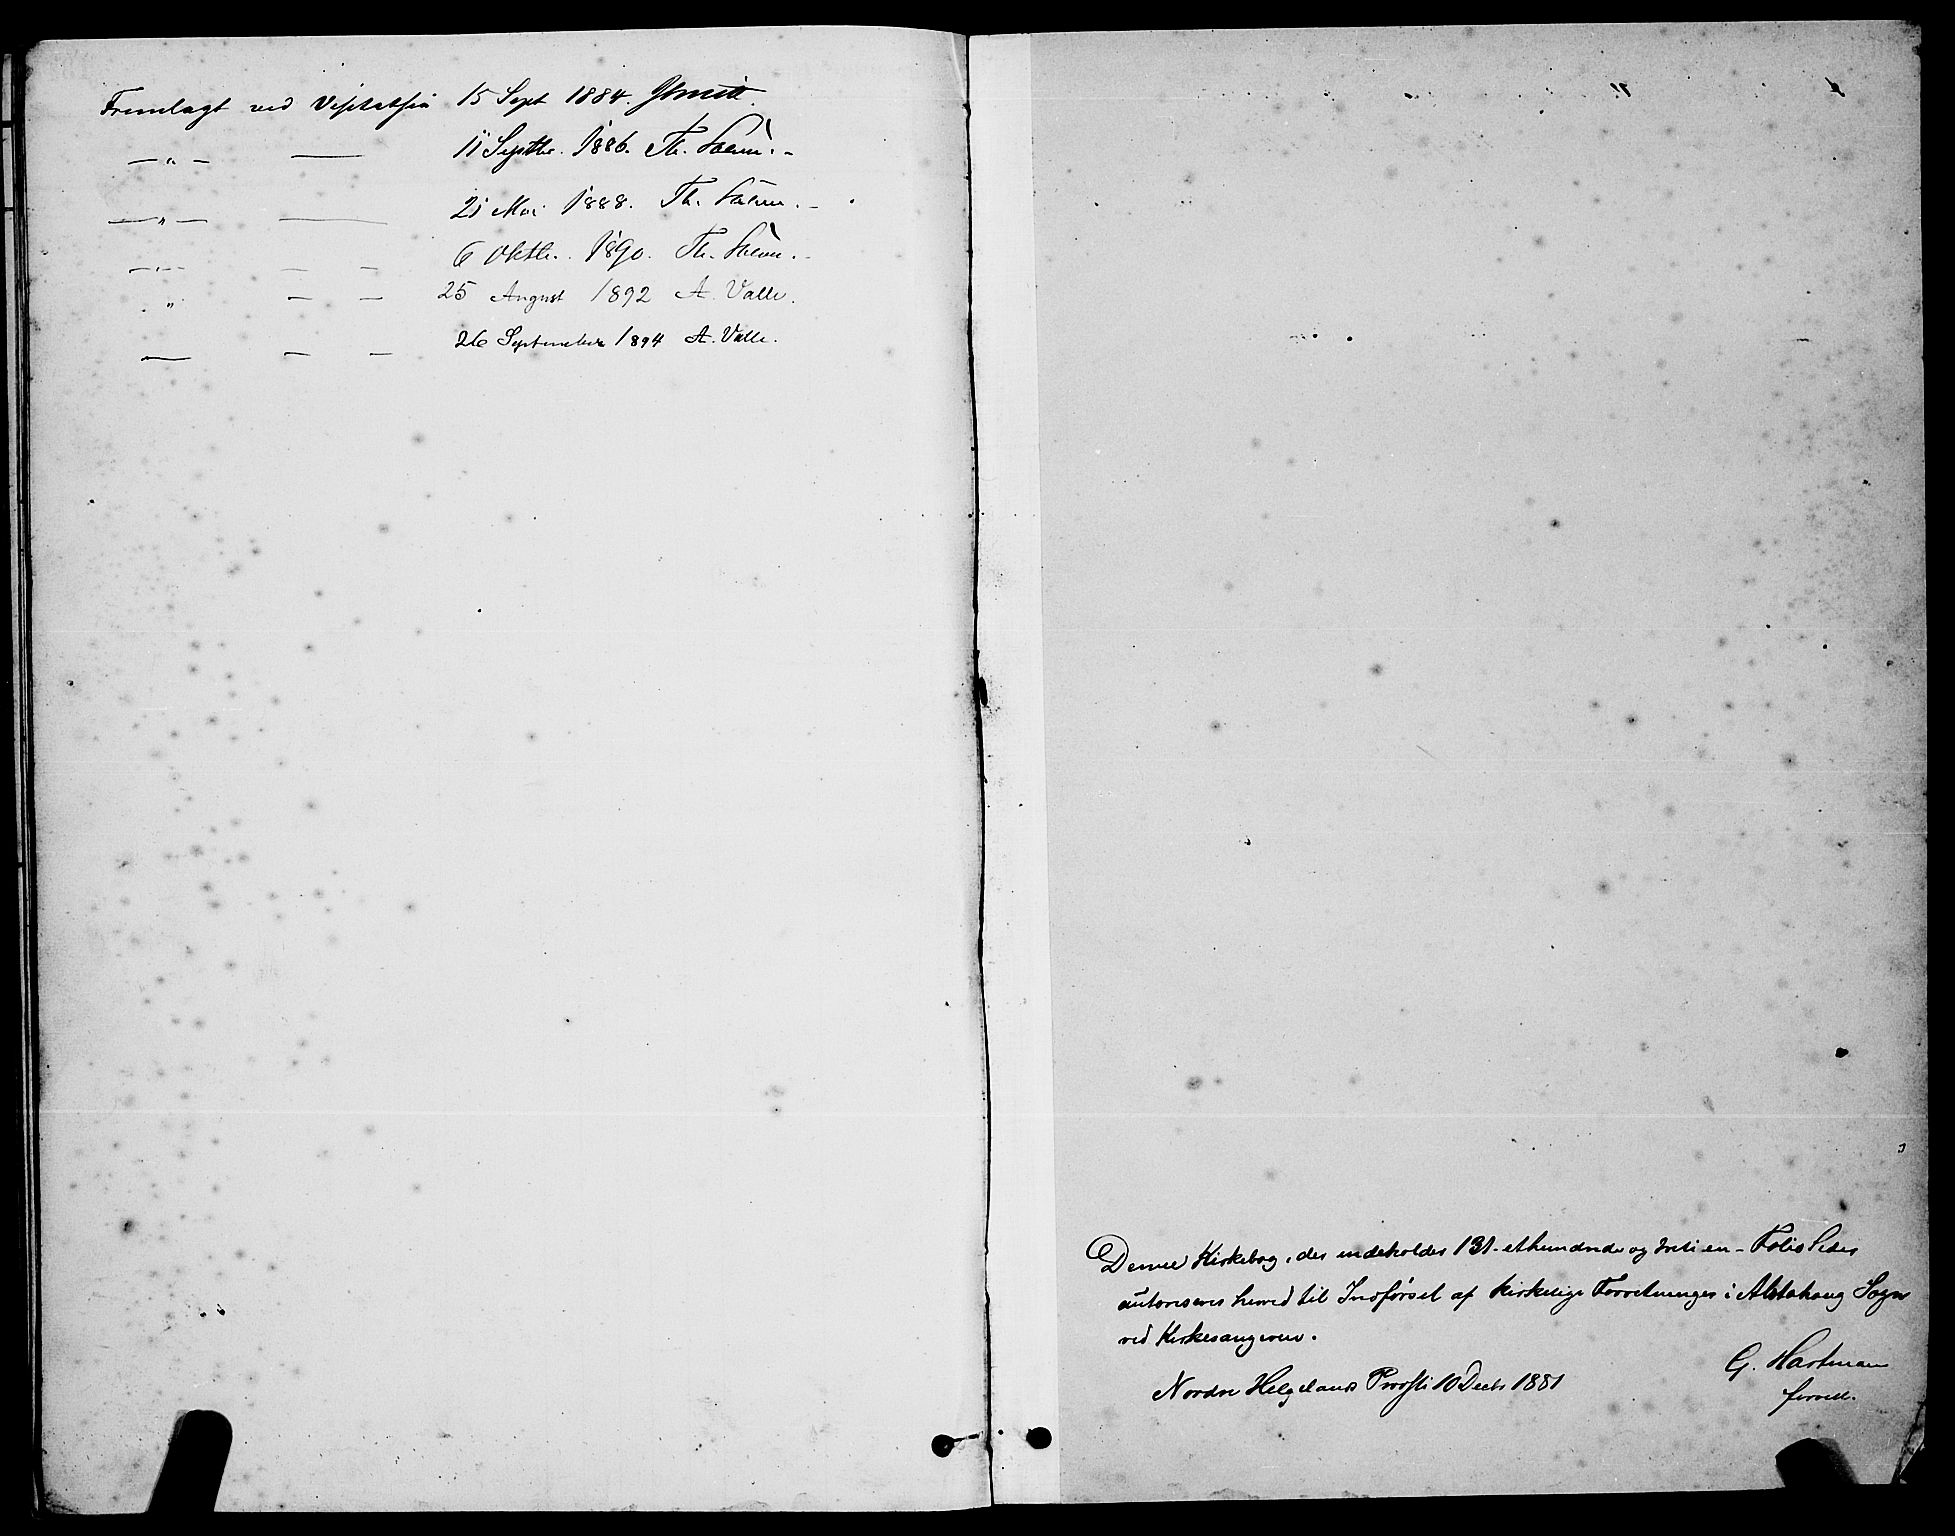 Fremlagt ved Visitatsen 15 Sept 1884.
— " — — 11 Septbr. 1886. Th.
— " — — 21 Mai 1888. Th.
— " — — — 6 Oktbr. 1890. Th.
" — — 25 August 1892 A. Valle.
— — — 26 September 1894 A. Valle.
Denne Kirkebog, der indeholder 131 - ethundrede og treti en - Folio Sider
autoriseres herved til Indførsel af kirkelige Forretninger i Alstahaug Sogn
ved Kirkesangeren.
Nordre Helgelands Provsti 10 Decbr 1881
G. Hartman